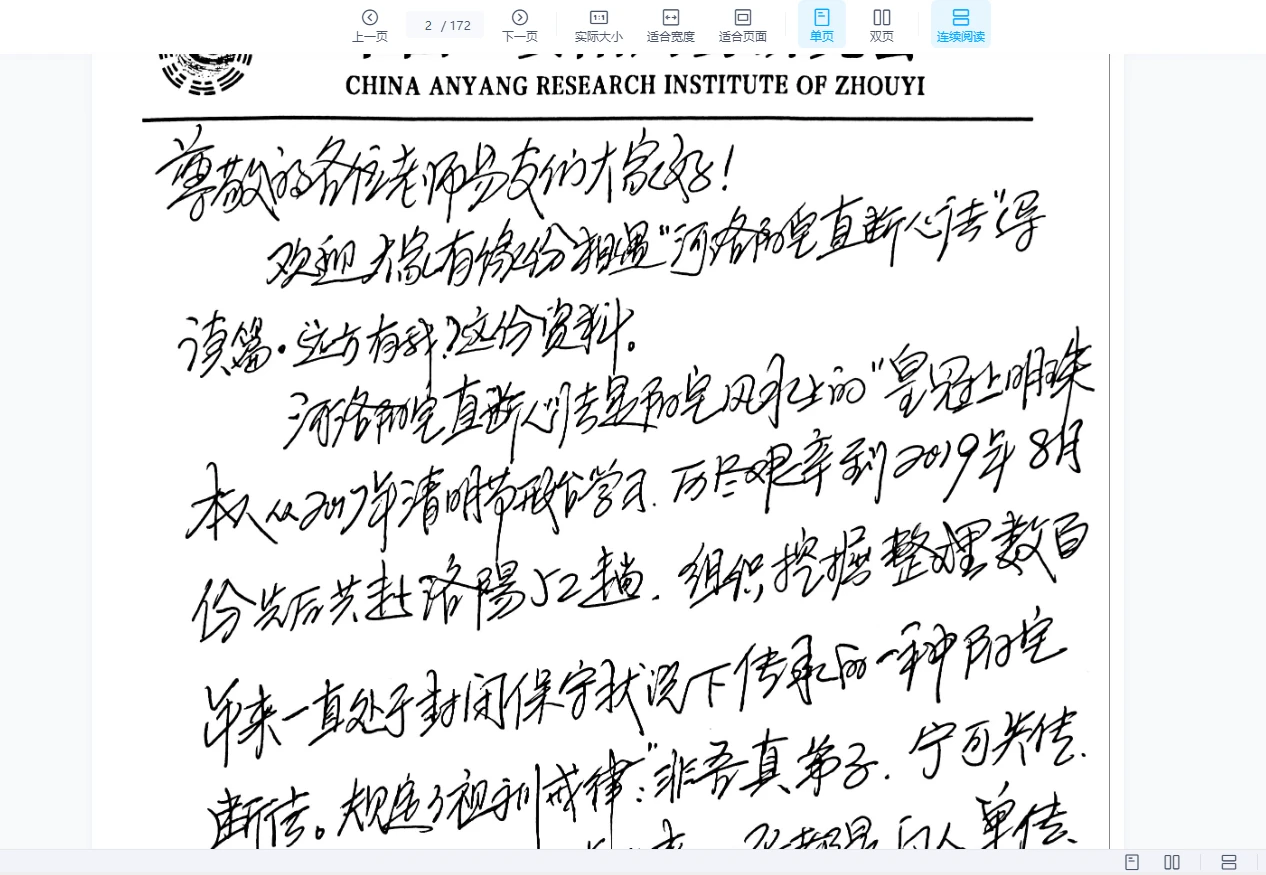 上一页 2 / 172 下一页 实际大小 适合宽度 适合页面 单页 双页 连续阅读
CHINA ANYANG RESEARCH INSTITUTE OF ZHOUYI
尊敬的各位老师易友们大家好！
欢迎大家有缘份相遇“河洛阴宅直断心法”导
读篇.远方有我？这份资料。
河洛阴宅直断心法是阴宅风水上的“皇冠上明珠
本人从2017年清明节开始学习.历尽艰辛到2019年8月
份先后共赴洛陽52趟.组织挖掘整理数百
年来一直处于封闭保守状况下传承的一种阴宅
断法。规遵了祖训戒律：“非吾真弟子.宁可失传.
单传、